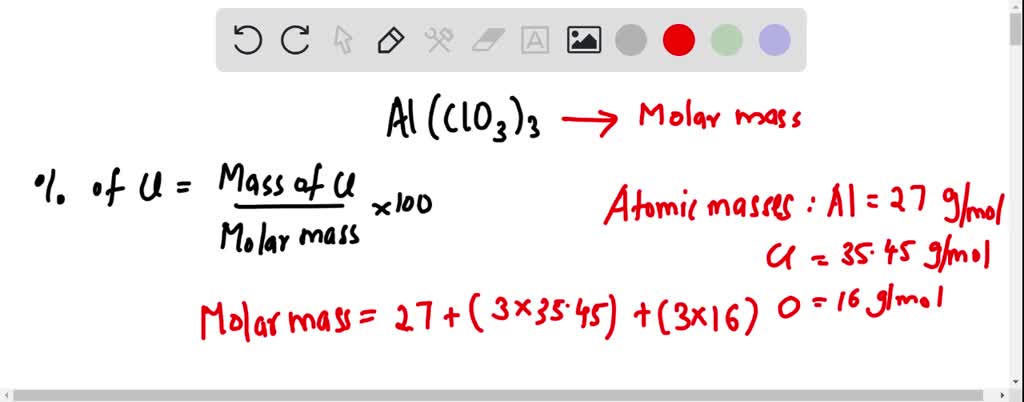 Al(ClO₃)₃ → Molar mass
% of Cl = Mass of Cl / Molar mass ×100
Atomic masses : Al = 27 g/mol
Cl = 35.45 g/mol
O = 16 g/mol
Molar mass = 27 + (3×35.45) + (3×16)